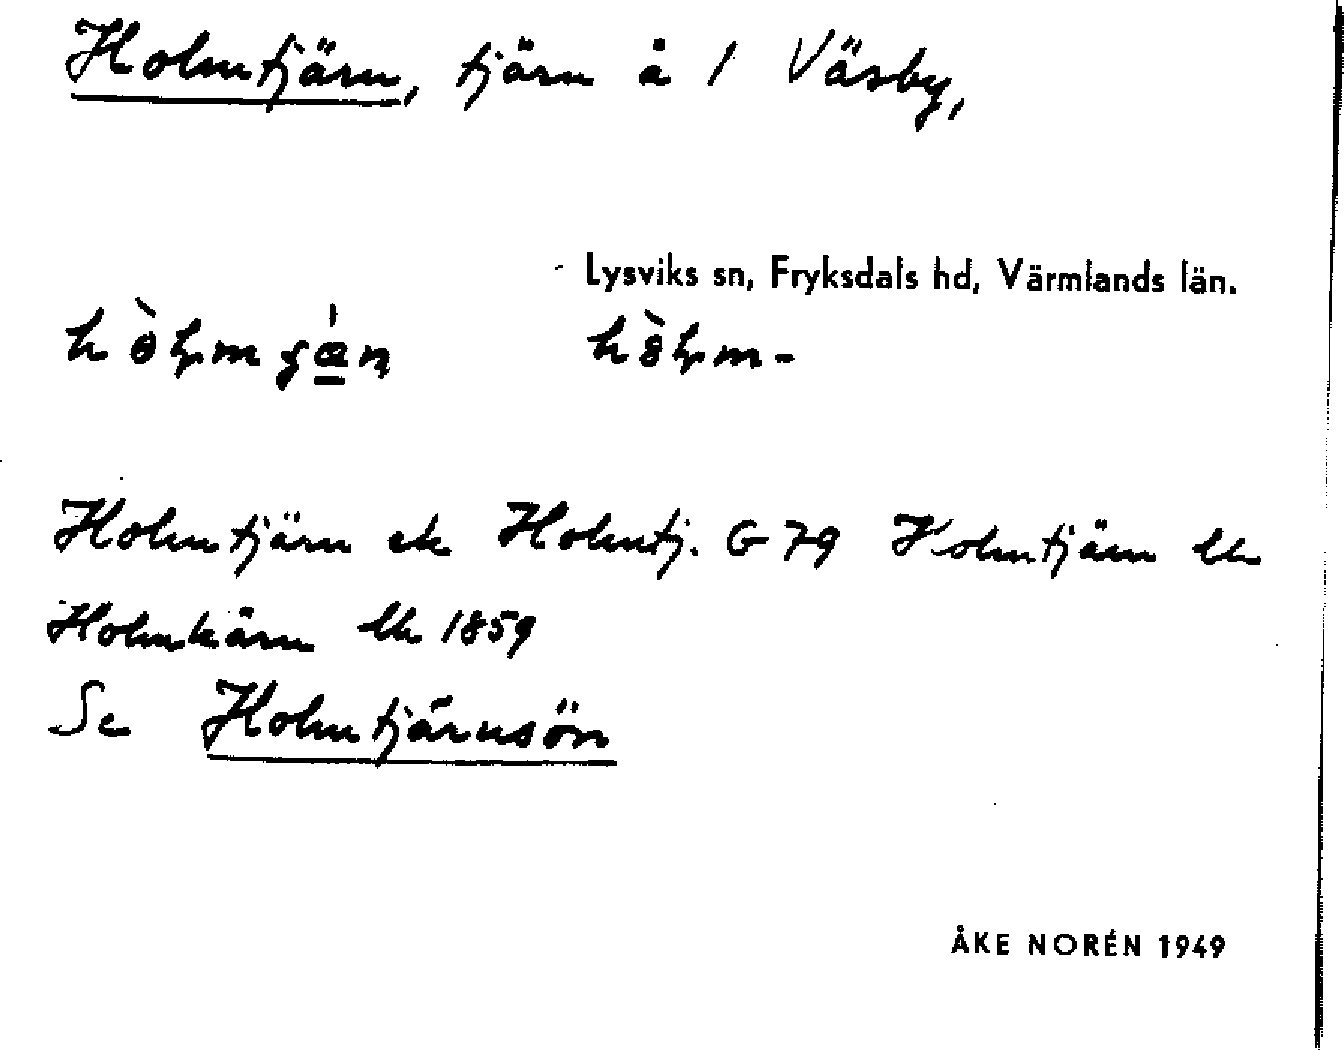 Holmtjärn, tjärn å 1 Väsby,
Lysviks sn, Fryksdals hd, Värmlands län.
Holmtjärn ek Holmtj. G 79 Holmtjärn lk
Holmkärn lk 1859
Se Holmtjärnsön
ÅKE NORÉN 1949